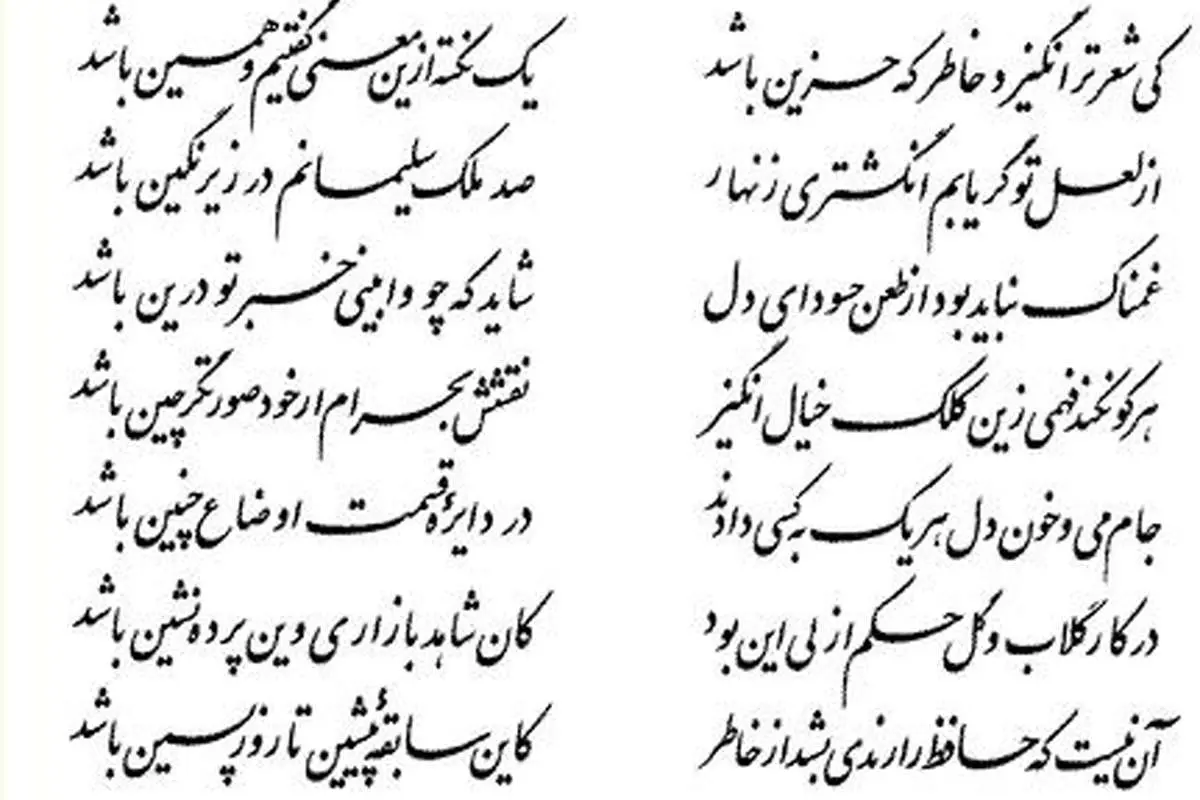 کی شعر تر انگیزد خاطر که حزین باشد یک نکته ازین معنی گفتیم و همین باشد
از لعل تو گر یابم انگشتری زنهار صد ملک سلیمانم در زیر نگین باشد
غمناک نباید بود از طعن حسود ای دل شاید که چو وابینی خیر تو درین باشد
هر کو نکند فهمی زین کلک خیال انگیز نقشش بحرام ار خود صورتگر چین باشد
جام می و خون دل هر یک به کسی دادند در دایرهٔ قسمت اوضاع چنین باشد
در کار گلاب و گل حکم ازلی این بود کان شاهد بازاری وین پرده نشین باشد
آن نیست که حافظ را رندی بشد از خاطر کاین سابقهٔ پیشین تا روز پسین باشد